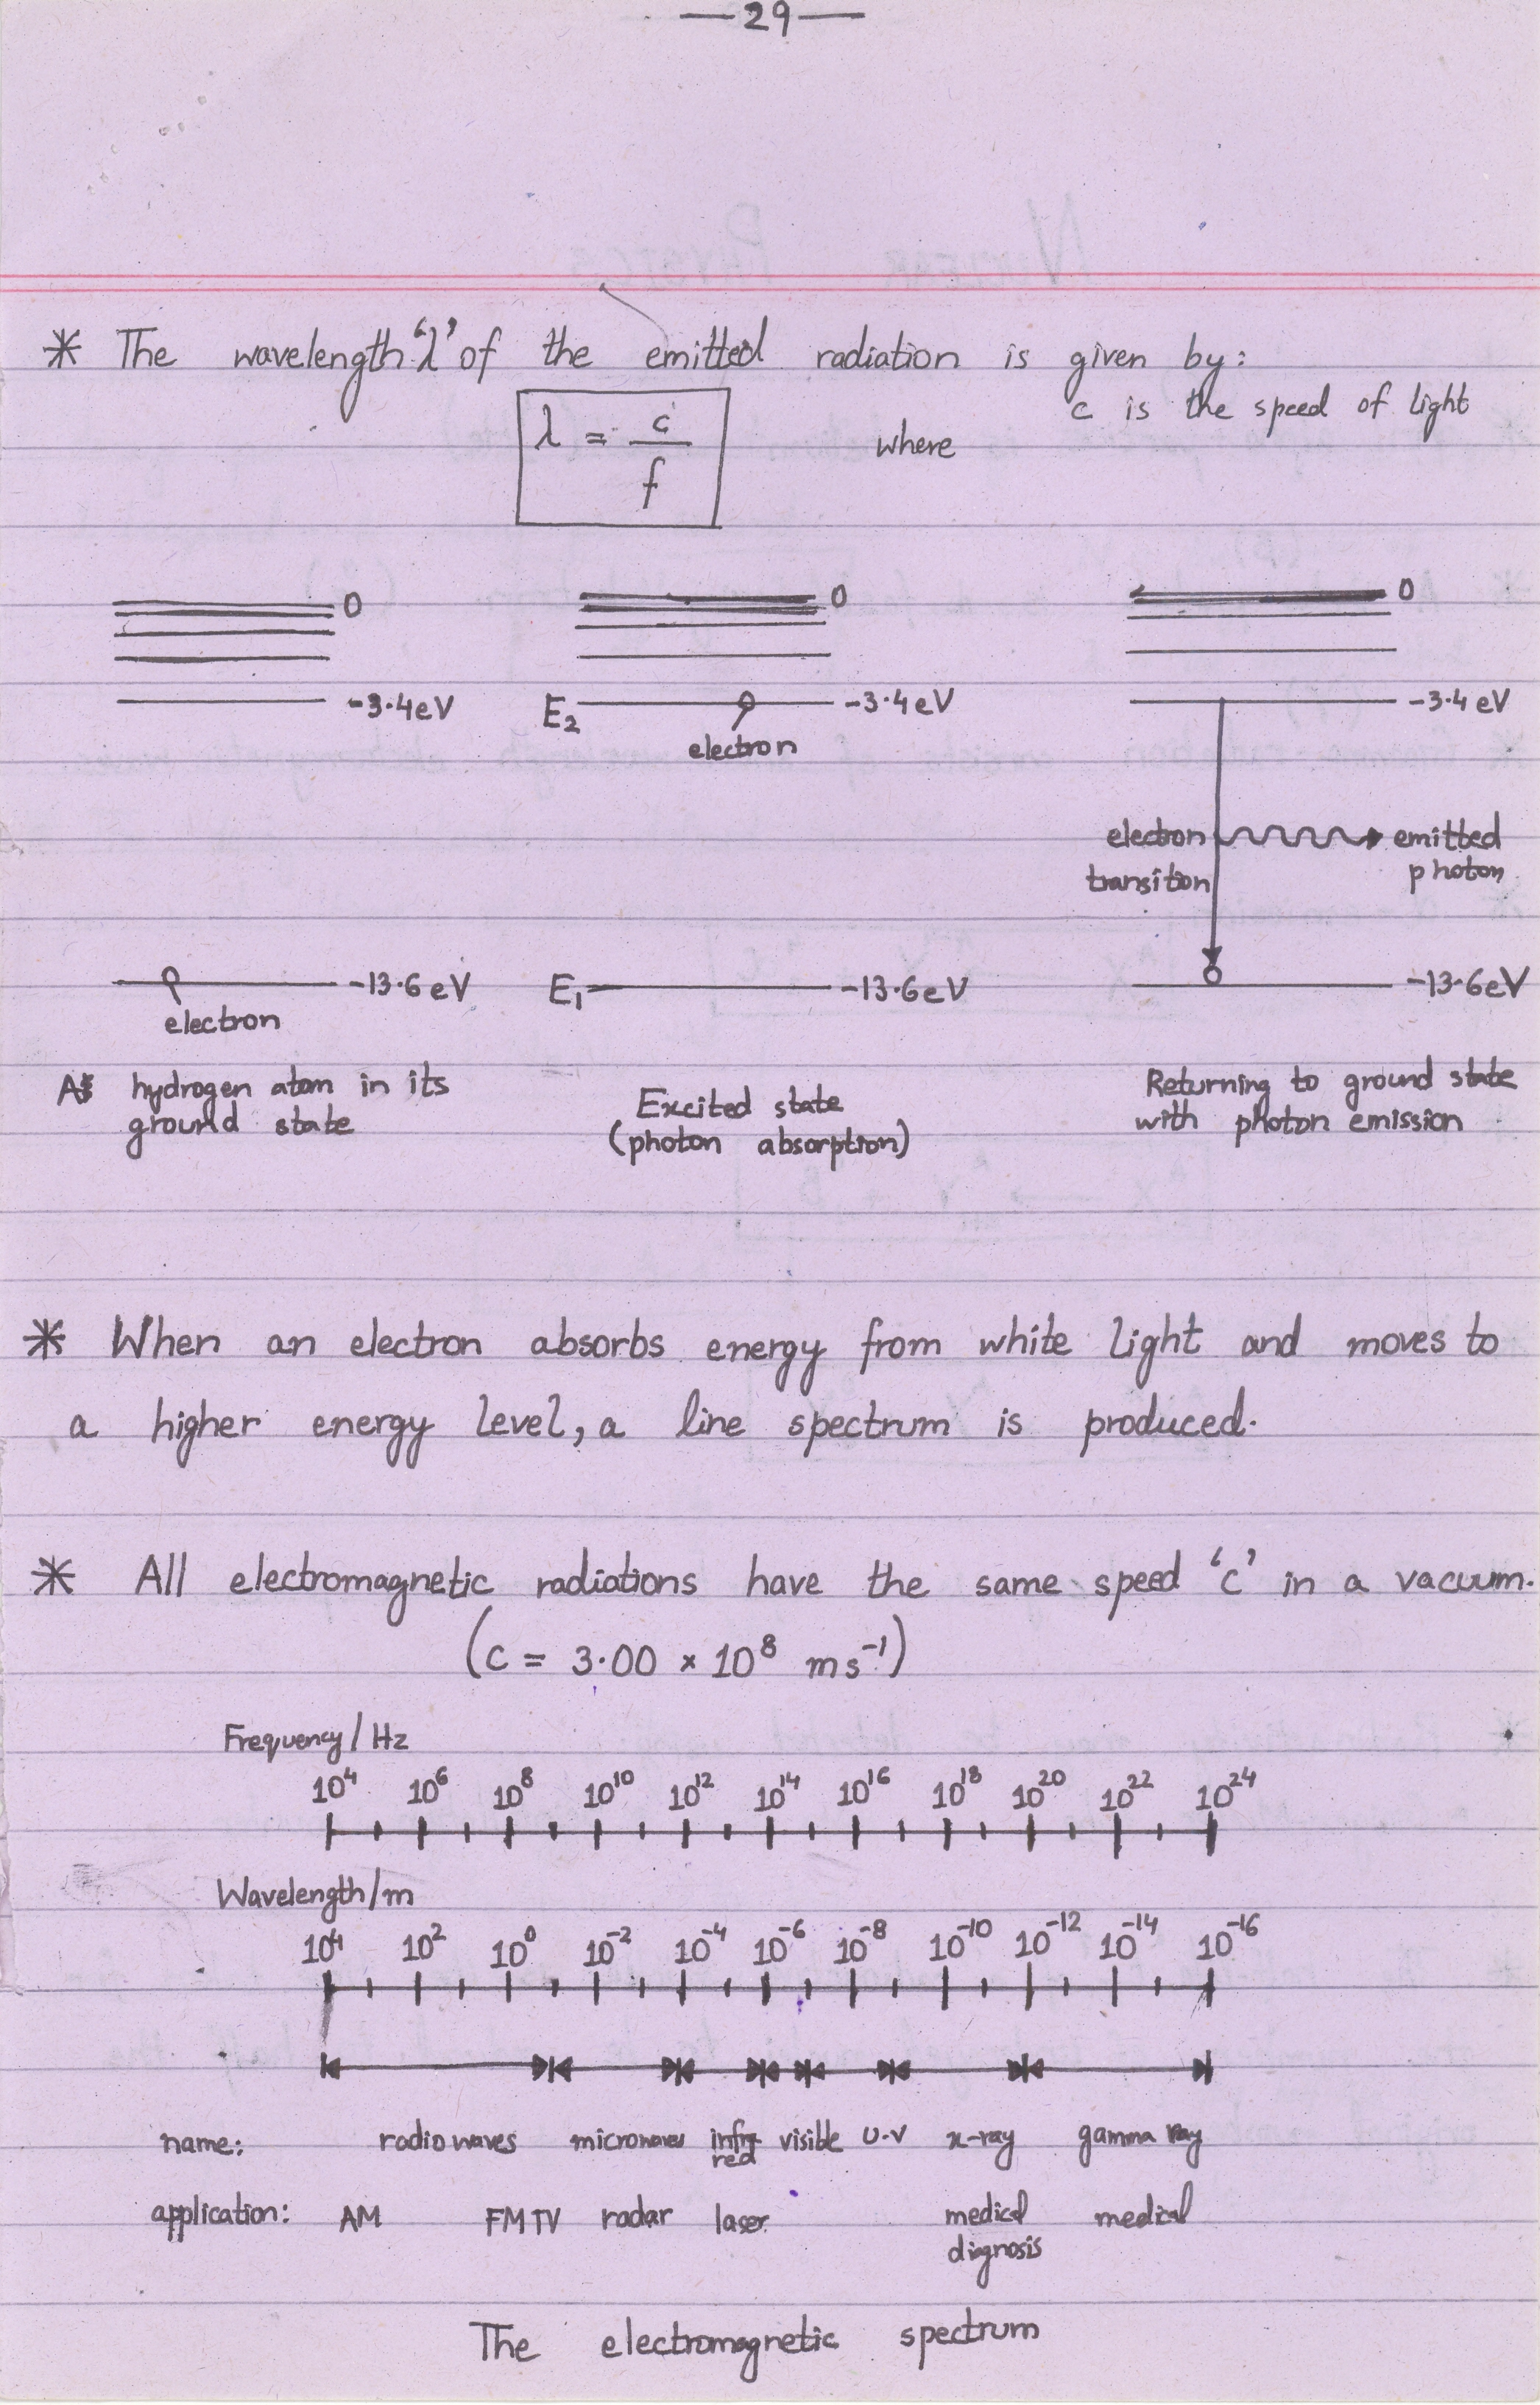 —29—
* The wavelength 'λ' of the emitted radiation is given by:
λ = c/f where c is the speed of light
0 0 0
-3.4eV E₂ -3.4eV -3.4eV
electron
electron transition emitted photon
-13.6eV E₁ -13.6eV -13.6eV
electron
A hydrogen atom in its
ground state
Excited state
(photon absorption)
Returning to ground state
with photon emission
* When an electron absorbs energy from white light and moves to
a higher energy level, a line spectrum is produced.
* All electromagnetic radiations have the same speed 'c' in a vacuum.
(c = 3.00 × 10⁸ ms⁻¹)
Frequency/Hz
10⁴ 10⁶ 10⁸ 10¹⁰ 10¹² 10¹⁴ 10¹⁶ 10¹⁸ 10²⁰ 10²² 10²⁴
Wavelength/m
10⁴ 10² 10⁰ 10⁻² 10⁻⁴ 10⁻⁶ 10⁻⁸ 10⁻¹⁰ 10⁻¹² 10⁻¹⁴ 10⁻¹⁶
name: radiowaves microwaves infra red visible U.V x-ray gamma ray
application: AM FM TV radar laser medical diagnosis medical
The electromagnetic spectrum